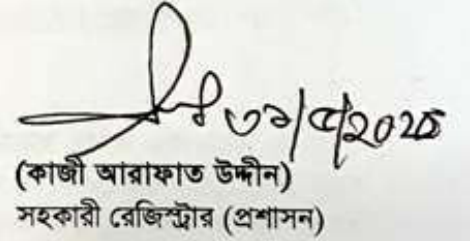 ৩১/৫/2025
(কাজী আরাফাত উদ্দীন)
সহকারী রেজিস্ট্রার (প্রশাসন)